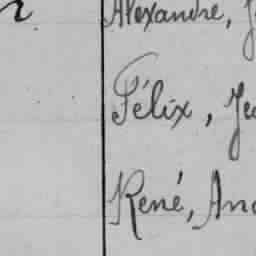 Alexandre,
Félix, Je
René, An